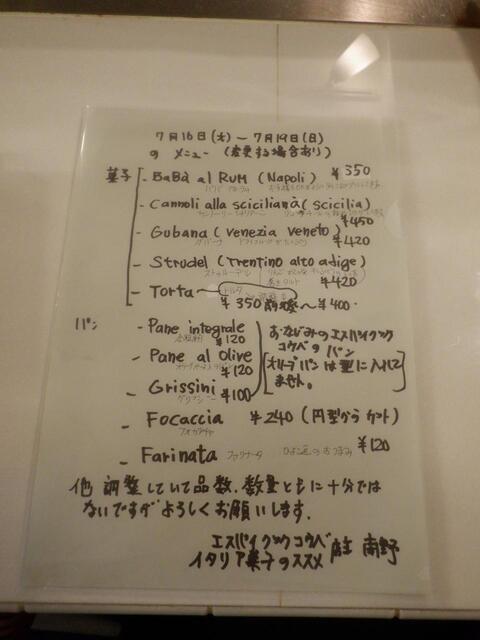 7月16日(木)ー7月19日(日)
の メニュー (変更する場合あり)
菓子 - BaBà al RUM (Napoli) ¥350
ババ アル ラム
- Cannoli alla sciciliana (scicilia) ¥450
- Gubana (venezia veneto) ¥420
グバーナ
- Strudel (Trentino alto adige) ¥420
ストゥルーデル
- Torta
トルタ
¥350 前後〜¥400
パン - Pane integrale ¥120
- Pane al Olive ¥120
- Grissini ¥100
グリッシーニ
おなじみのエスパイクック
コウベの パン
オリーブパンは型に入れて
ません。
- Focaccia ¥240 (円型からカット)
フォカッチャ
- Farinata ¥120
ファリナータ ひよこ豆のおつまみ
他 調整していて品数、数量ともに十分では
ないですがよろしくお願いします。
エスパイクックコウベ
イタリア菓子のススメ 店主 南野